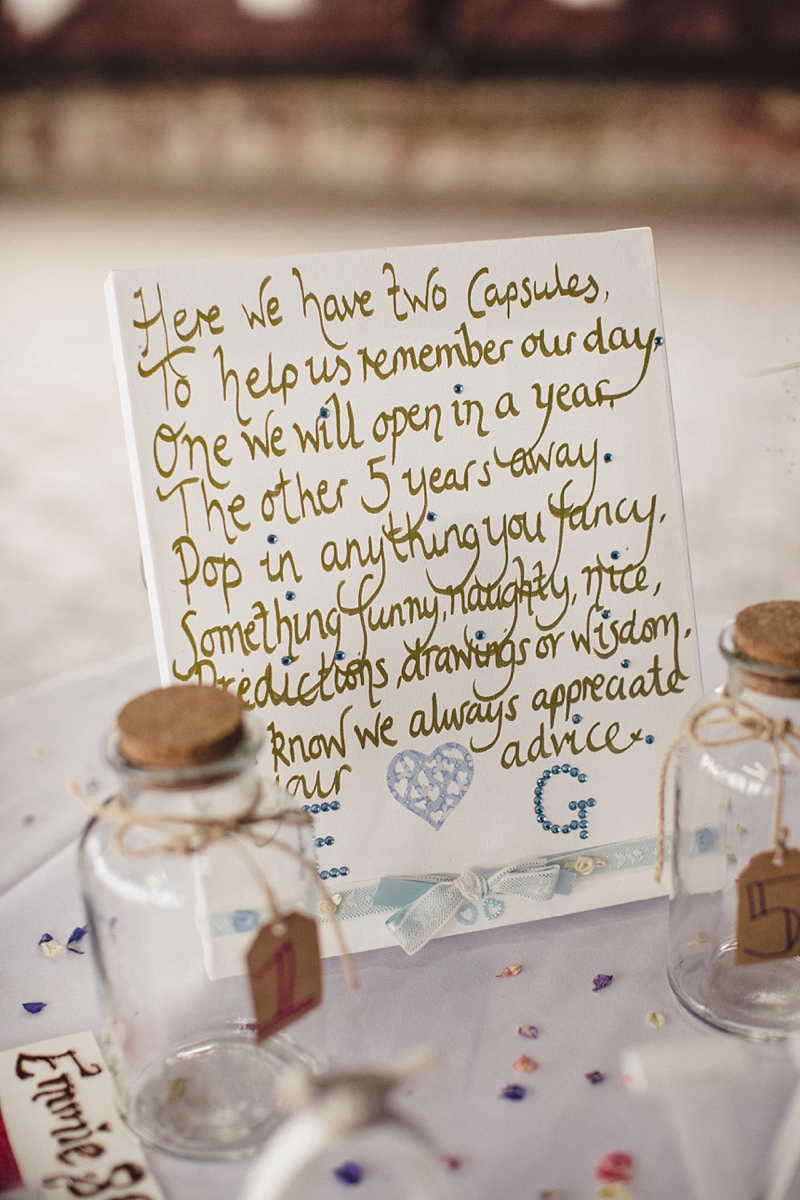 Here we have two Capsules,
To help us remember our day.
One we will open in a year,
The other 5 years away.
Pop in anything you fancy,
Something funny, naughty, nice,
Predictions, drawings or wisdom.
know we always appreciate
advice.
E G
1
5
Emmie